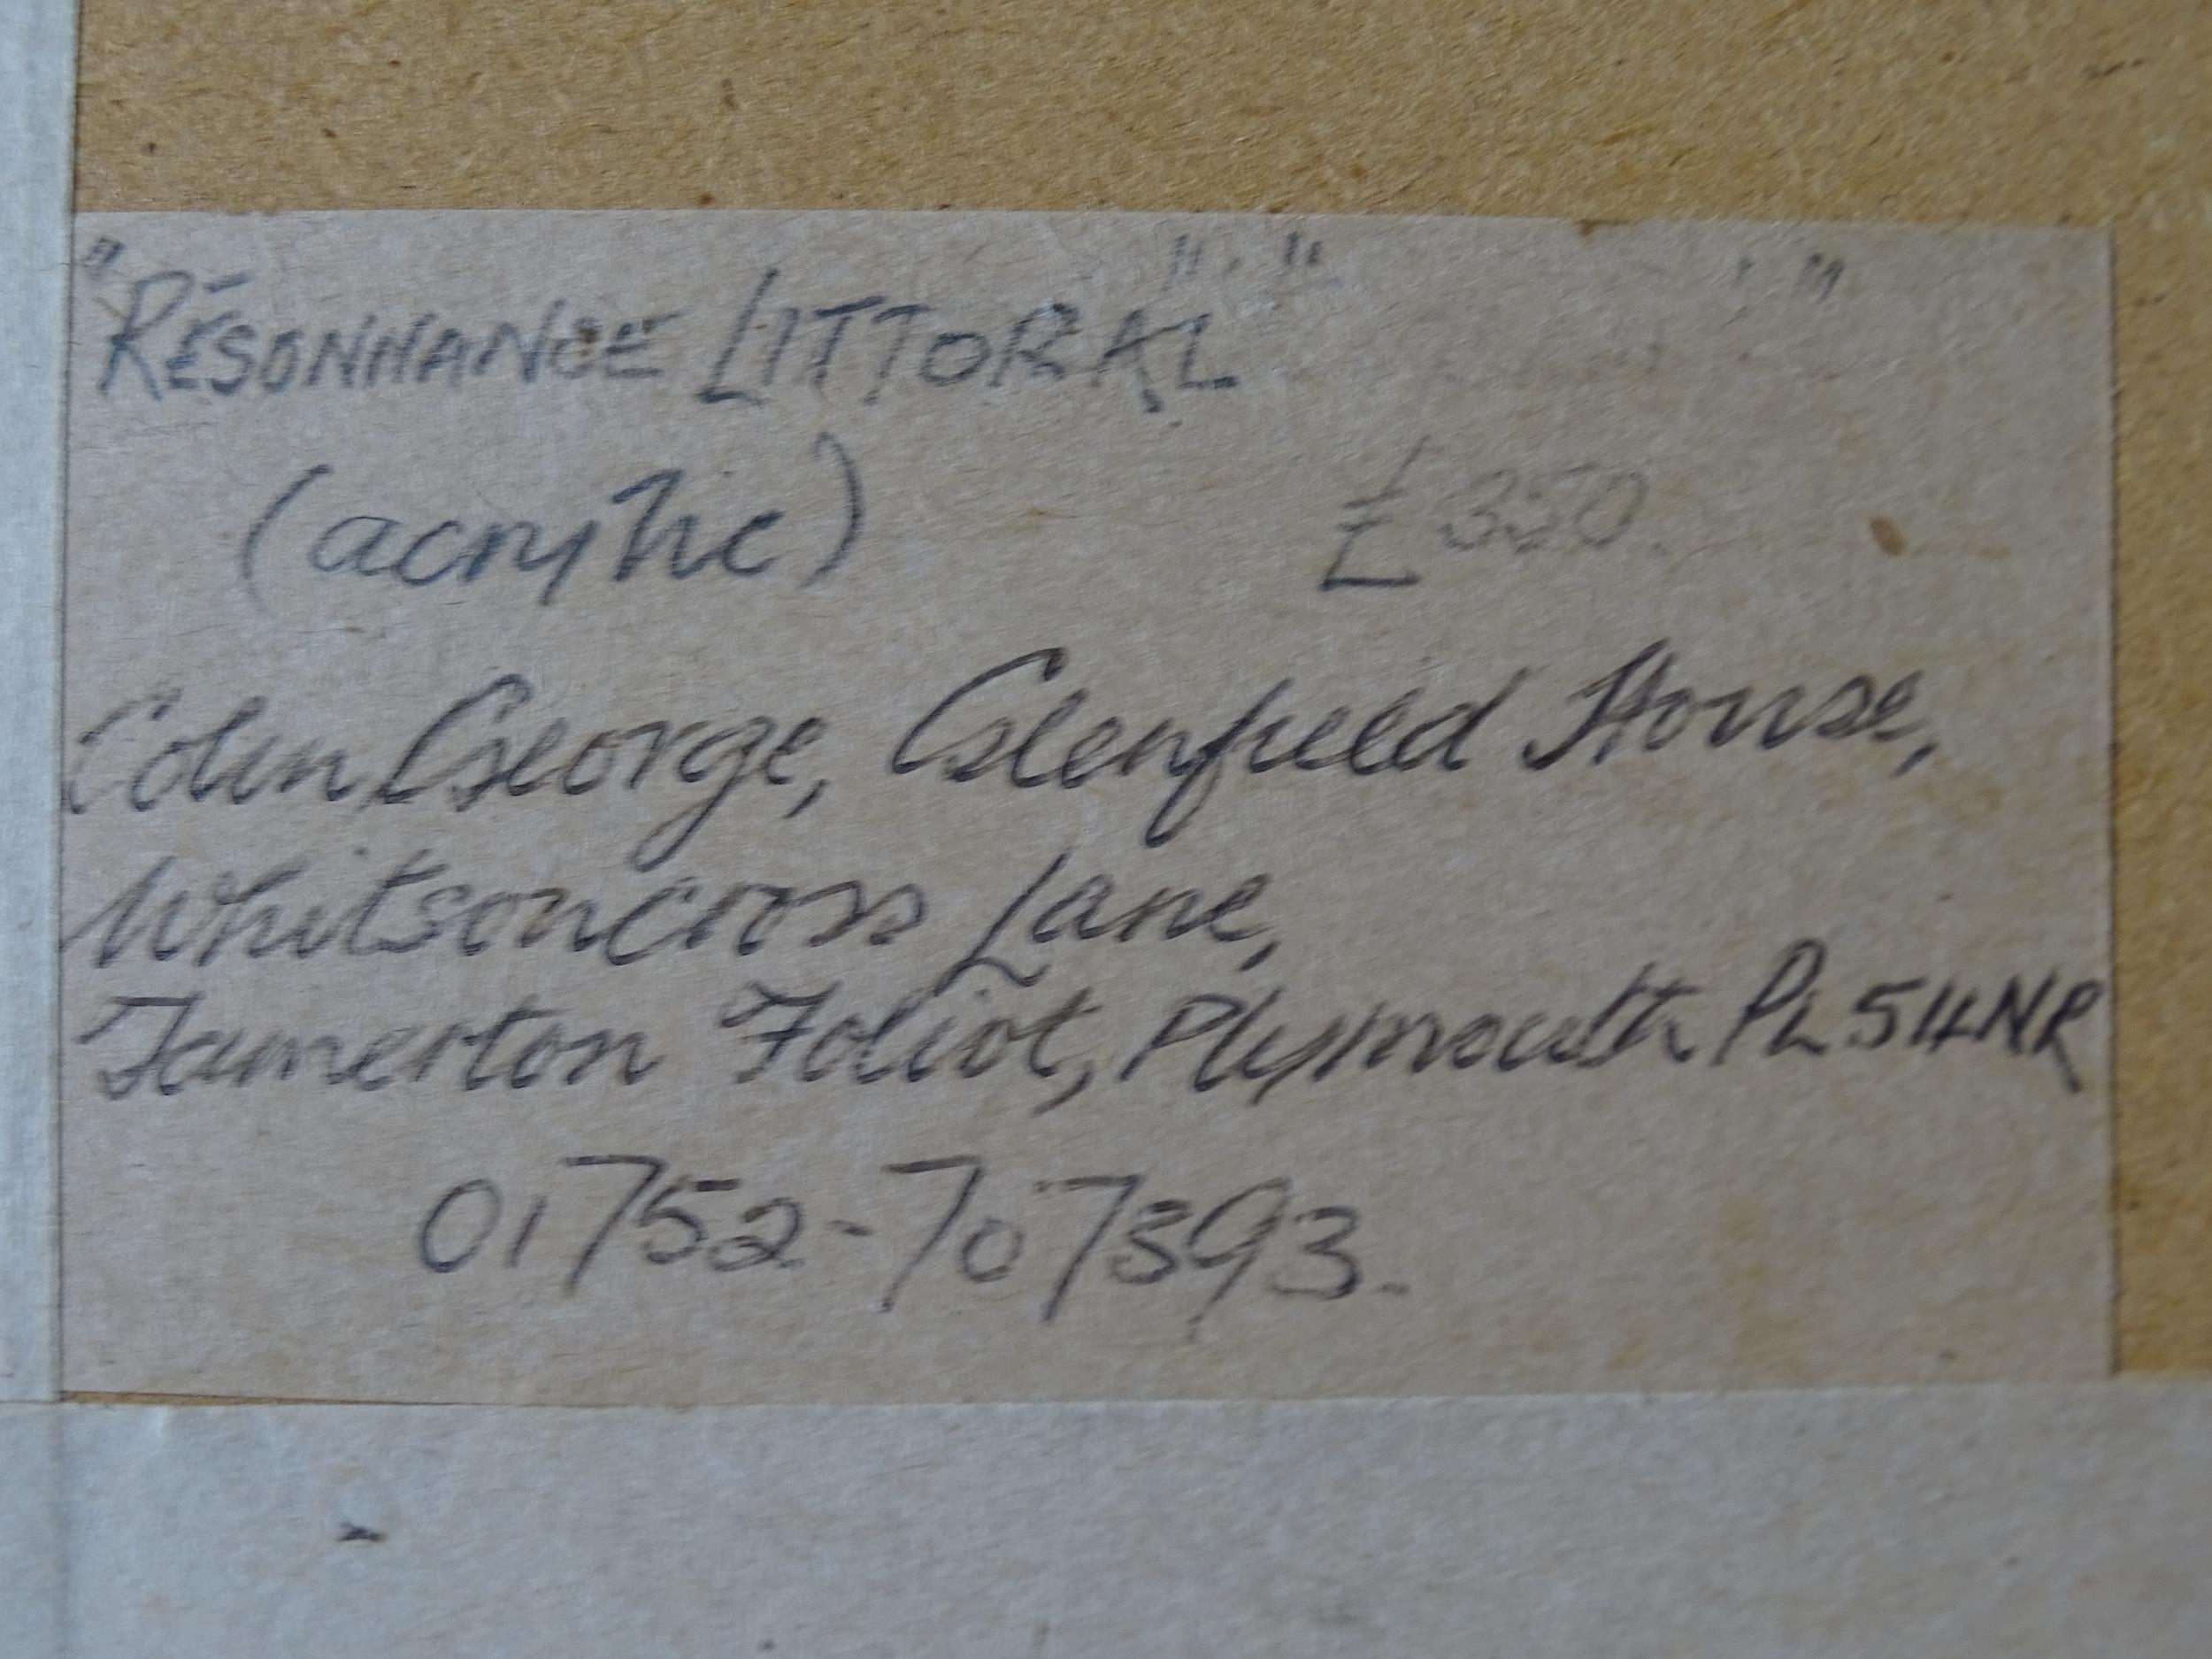 "RÉSONNANCE LITTORAL"
(acrylic) £350.
Colin George, Glenfield House,
Whitsoncross Lane,
Tamerton Foliot, Plymouth PL5 4NR
01752-707393.